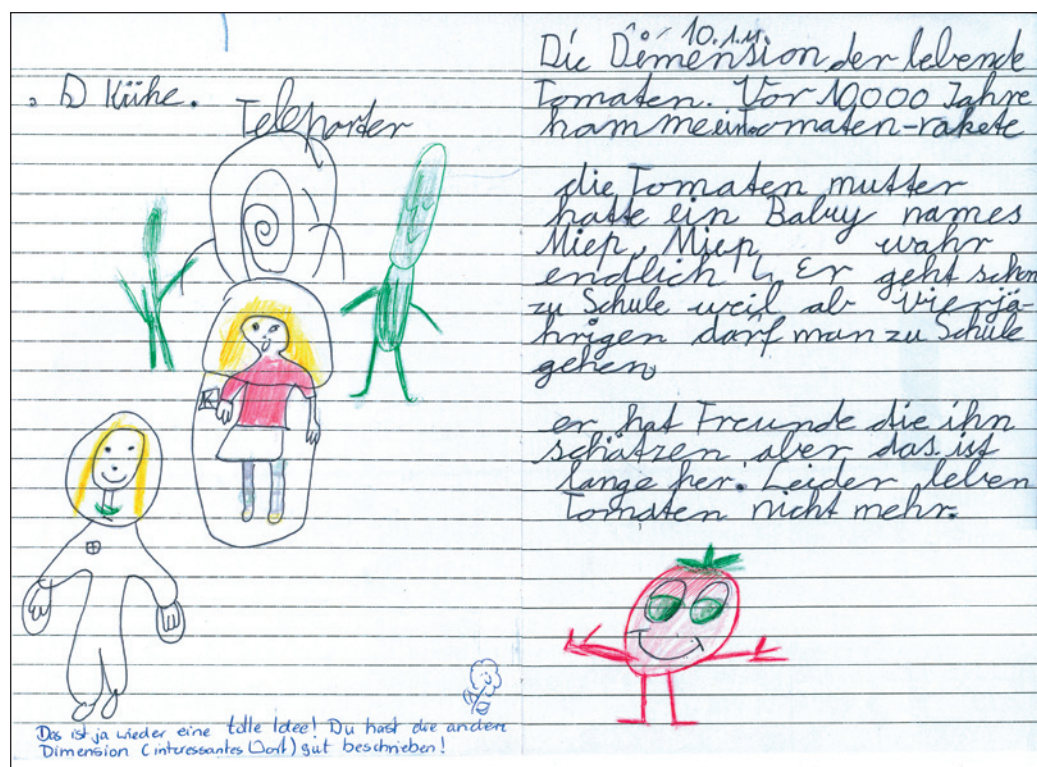 , b) Kühe.
Teleporter
Das ist ja wieder eine tolle Idee! Du hast die andere
Dimension (interessantes Wort) gut beschrieben!
10.1.11.
Die Dimension der lebende
Tomaten. Vor 10000 Jahre
kam eine Tomaten-rakete
die Tomaten mutter
hatte ein Baby names
Miep, Miep wahr
endlich 4 Er geht schon
zu Schule weil ab vierjä-
hrigen darf man zu Schule
gehen.
er hat Freunde die ihn
schätzen aber das ist
lange her. Leider leben
Tomaten nicht mehr.